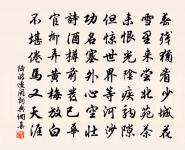 春殘猶看少城花
雪裏來嘗北苑茶
未恨光陰疾駒隙
但驚世界等河沙
功名塞外心空壯
詩酒樽前髮已華
官柳弄黃梅放白
不堪倦馬又天涯
陸游適閩詞典網集